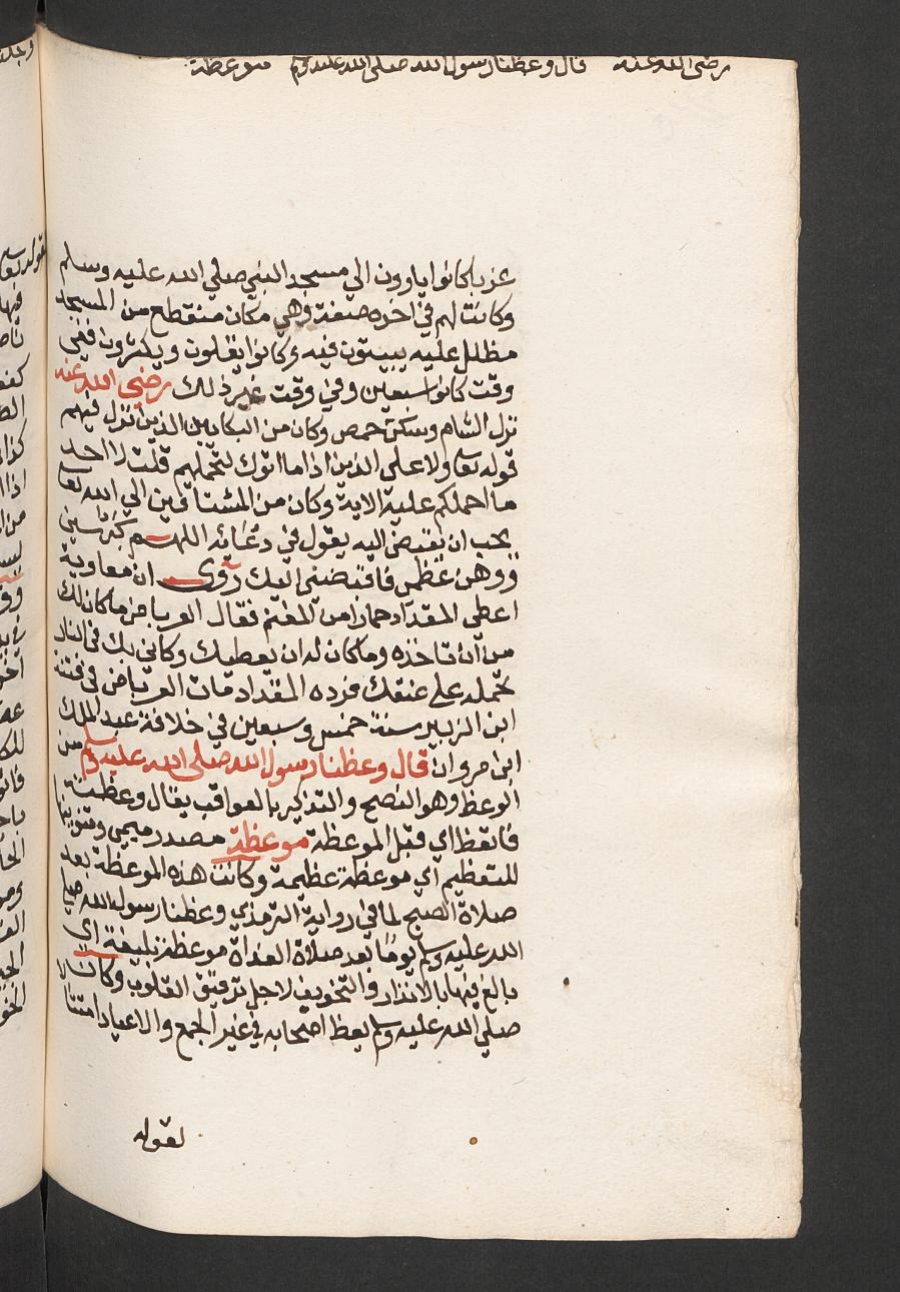 رضي الله عنه قال وعظنا رسول الله صلي الله عليه وسلم موعظة
عزبا كانوا ياوون الي مسجد النبي صلي الله عليه وسلم
وكانت لهم في اخره صفة وهي مكان منقطع من المسجد
مظلل عليه يبيتون فيه وكانوا يقلون ويكثرون ففي
وقت كانوا سبعين وفي وقت غير ذلك رضي الله عنه
نزل الشام وسكن حمص وكان من البكايين الذين نزل فيهم
قوله تعا ولا علي الذين اذا ما اتوك لتحملهم قلت لا اجد
ما احملكم عليه الاية وكان من المشتاقين الي الله تعا
يحب ان يقبض اليه يقول في دعائه اللهم كبر سني
ووهن عظمي فاقبضني اليك روي ان معاوية
اعطي المقداد حمارا من المغنم فقال العرباض ما كان لك
من ان تاخذه وما كان له ان يعطيك وكاني بك في النار
تحمله علي عنقك فرده المقداد مات العرباض في فتنة
ابن الزبير سنة خمس وسبعين في خلافة عبد الملك
ابن مروان قال وعظنا رسول الله صلي الله عليه وسلم من
الوعظ وهو النصح والتذكير بالعواقب يقال وعظته
فاتعظ اي قبل الموعظة موعظة مصدر ميمي وتنوينها
للتعظيم اي موعظة عظيمة وكانت هذه الموعظة بعد
صلاة الصبح لما في رواية الترمذي وعظنا رسول الله صلي
الله عليه وسلم يوما بعد صلاة الغداة موعظة بليغة اي
بالغ فيها بالانذار والتخويف لاجل ترقيق القلوب وكان
صلي الله عليه وسلم يعظ اصحابه في غير الجمع والاعياد امتثالا
لقوله